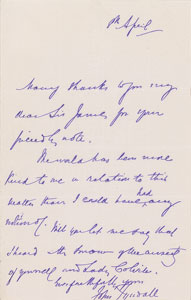 April
Many thanks to you my
dear Sir James for your
friendly note.
The world has been more
kind to me in relation to this
had
matter than I could have any
notion of. Will you let me say that
I heard with sorrow of the
of yourself and Lady
John Tyndall